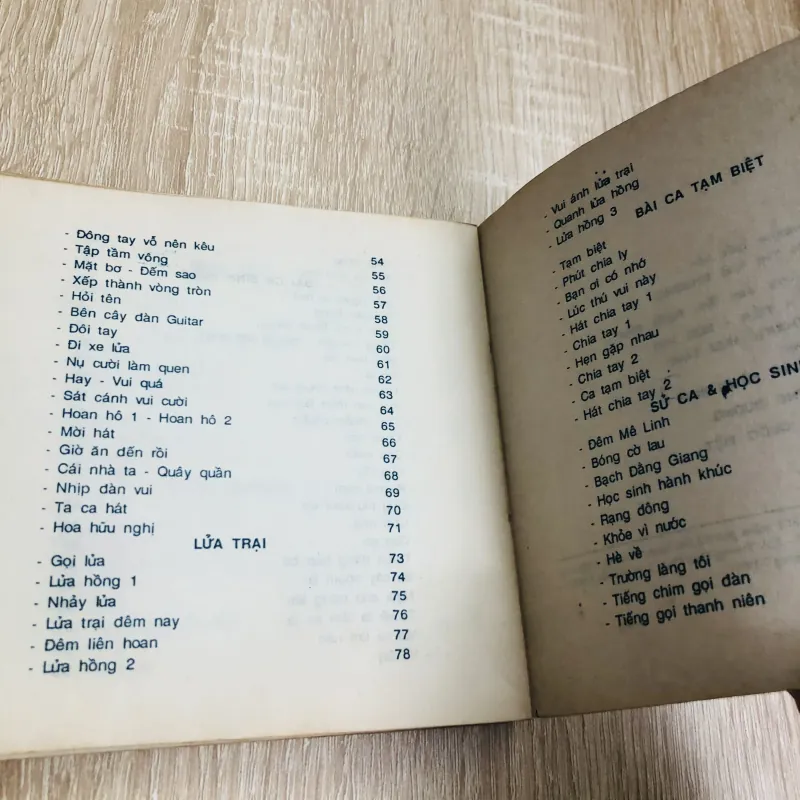 - Đông tay vỗ nên kêu 54
- Tập tầm vông 55
- Mặt bơ - Đếm sao 56
- Xếp thành vòng tròn 57
- Hỏi tên 58
- Bên cây đàn Guitar 59
- Đôi tay 60
- Đi xe lửa 61
- Nụ cười làm quen 62
- Hay - Vui quá 63
- Sát cánh vui cười 64
- Hoan hô 1 - Hoan hô 2 65
- Mời hát 66
- Giờ ăn đến rồi 67
- Cái nhà ta - Quây quần 68
- Nhịp đàn vui 69
- Ta ca hát 70
- Hoa hữu nghị 71
LỬA TRẠI
- Gọi lửa 73
- Lửa hồng 1 74
- Nhảy lửa 75
- Lửa trại đêm nay 76
- Đêm liên hoan 77
- Lửa hồng 2 78
- Vui ánh lửa trại
- Quanh lửa hồng
- Lửa hồng 3
BÀI CA TẠM BIỆT
- Tạm biệt
- Phút chia ly
- Bạn ơi có nhớ
- Lúc thú vui này
- Hát chia tay 1
- Chia tay 1
- Hẹn gặp nhau
- Chia tay 2
- Ca tạm biệt
- Hát chia tay 2
SỬ CA & HỌC SINH
- Đêm Mê Linh
- Bóng cờ lau
- Bạch Đằng Giang
- Học sinh hành khúc
- Rạng đông
- Khỏe vì nước
- Hè về
- Trường làng tôi
- Tiếng chim gọi đàn
- Tiếng gọi thanh niên